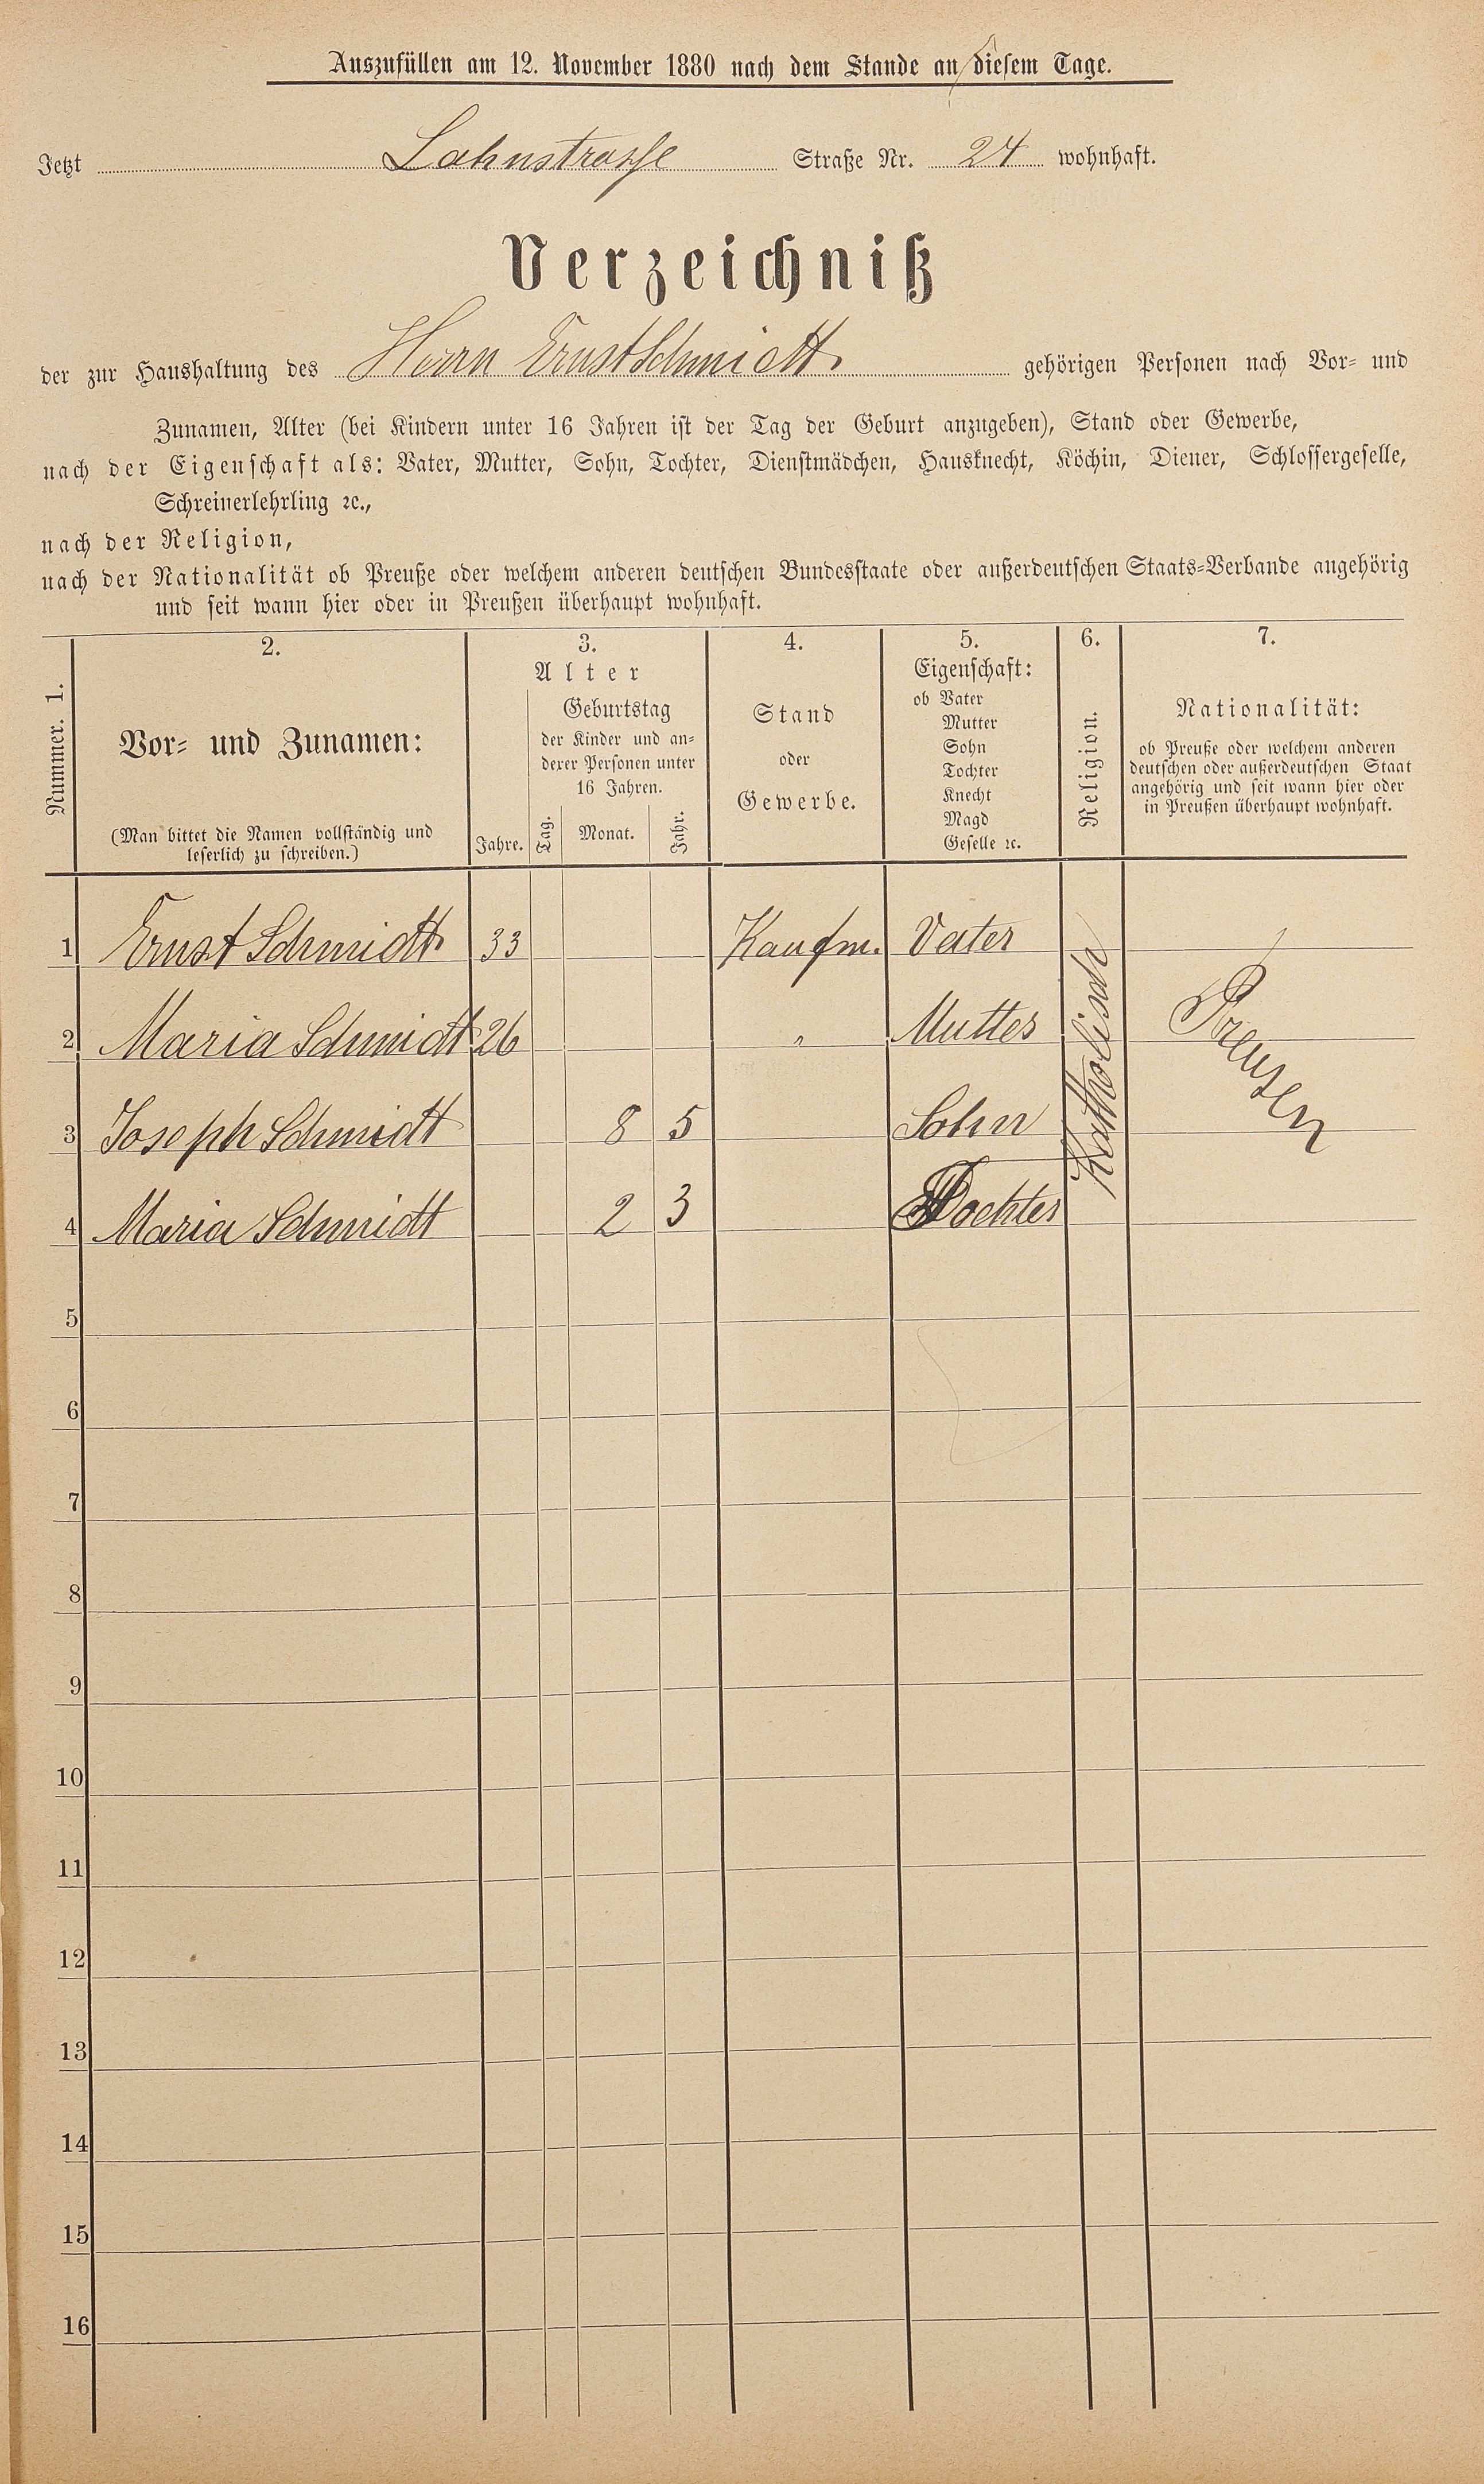 Auszufüllen am 12. November 1880 nach dem Stande an diesem Tage.
Jetzt Lahnstrasse Straße Nr. 24 wohnhaft.
Verzeichniß
der zur Haushaltung des Herrn Ernst Schmidt. gehörigen Personen nach Vor- und
Zunamen, Alter (bei Kindern unter 16 Jahren ist der Tag der Geburt anzugeben), Stand oder Gewerbe,
nach der Eigenschaft als: Vater, Mutter, Sohn, Tochter, Dienstmädchen, Hausknecht, Köchin, Diener, Schlossergeselle,
Schreinerlehrling ꝛc.,
nach der Religion,
nach der Nationalität ob Preuße oder welchem anderen deutschen Bundesstaate oder außerdeutschen Staats-Verbande angehörig
und seit wann hier oder in Preußen überhaupt wohnhaft.
Nummer. 1.
2.
Vor- und Zunamen:
(Man bittet die Namen vollständig und
leserlich zu schreiben.)
3.
Alter
Jahre.
Geburtstag
der Kinder und an-
derer Personen unter
16 Jahren.
Tag.
Monat.
Jahr.
4.
Stand
oder
Gewerbe.
5.
Eigenschaft:
ob Vater
Mutter
Sohn
Tochter
Knecht
Magd
Geselle ꝛc.
6.
Religion.
7.
Nationalität:
ob Preuße oder welchem anderen
deutschen oder außerdeutschen Staat
angehörig und seit wann hier oder
in Preußen überhaupt wohnhaft.
1 Ernst Schmidt. 33 Kaufm. Vater
2 Maria Schmidt 26 " Mutter
3 Joseph Schmidt 8 5 Sohn
4 Maria Schmidt 2 3 Tochter
Katholisch
Preusen
5
6
7
8
9
10
11
12
13
14
15
16